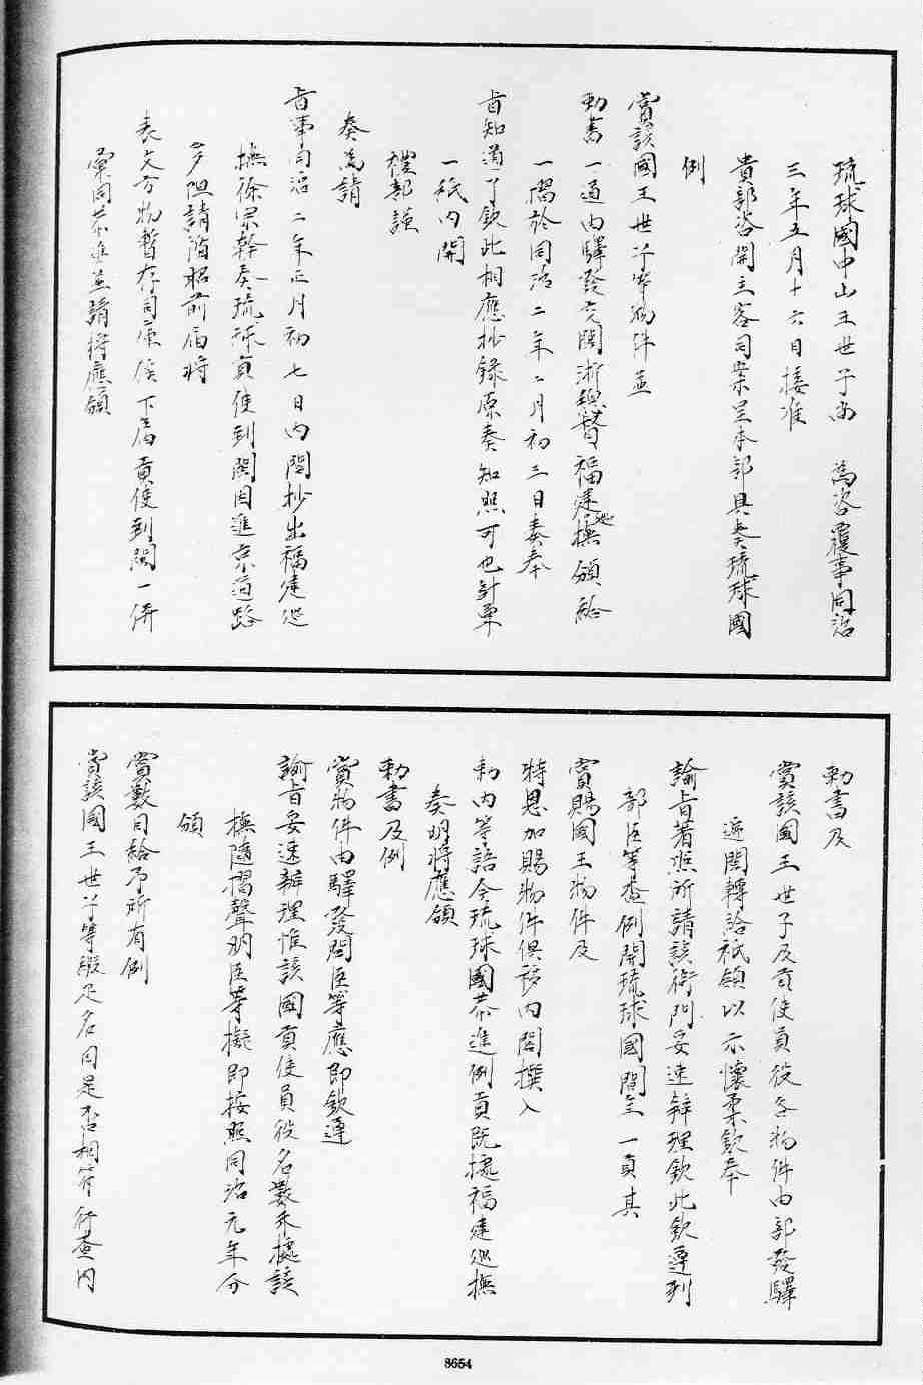 琉球國中山王世子尚　為咨覆事同治
三年五月十六日接准
貴部咨開主客司案呈本部具奏琉球國
例
賞該國王世子等物件並
勅書一道由驛發交閩浙總督福建巡撫頒給
一摺於同治二年二月初三日奏奉
旨知道了欽此相應抄錄原奏知照可也計單
一紙內開
禮部謹
奏為請
旨事同治二年正月初七日內閣抄出福建巡
撫徐宗幹奏琉球貢使到閩因進京道路
多阻請循照前屆將
表文方物暫存司庫俟下屆貢使到閩一併
彙同恭進並請將應頒
勅書及
賞該國王世子及貢使員役各物件由部發驛
遞閩轉給祇領以示懷柔欽奉
諭旨著照所請該衙門妥速辦理欽此欽遵到
部臣等查例開琉球國間年一貢其
賞賜國王物件及
特恩加賜物件俱移內閣撰入
勅內等語今琉球國恭進例貢既據福建巡撫
奏明將應頒
勅書及例
賞物件由驛發閩臣等應即欽遵
諭旨妥速辦理惟該國貢使員役名數未據該
撫隨摺聲明臣等擬即按照同治元年分
頒
賞數目給予所有例
賞該國王世子等緞疋名目是否相符行查內
8654